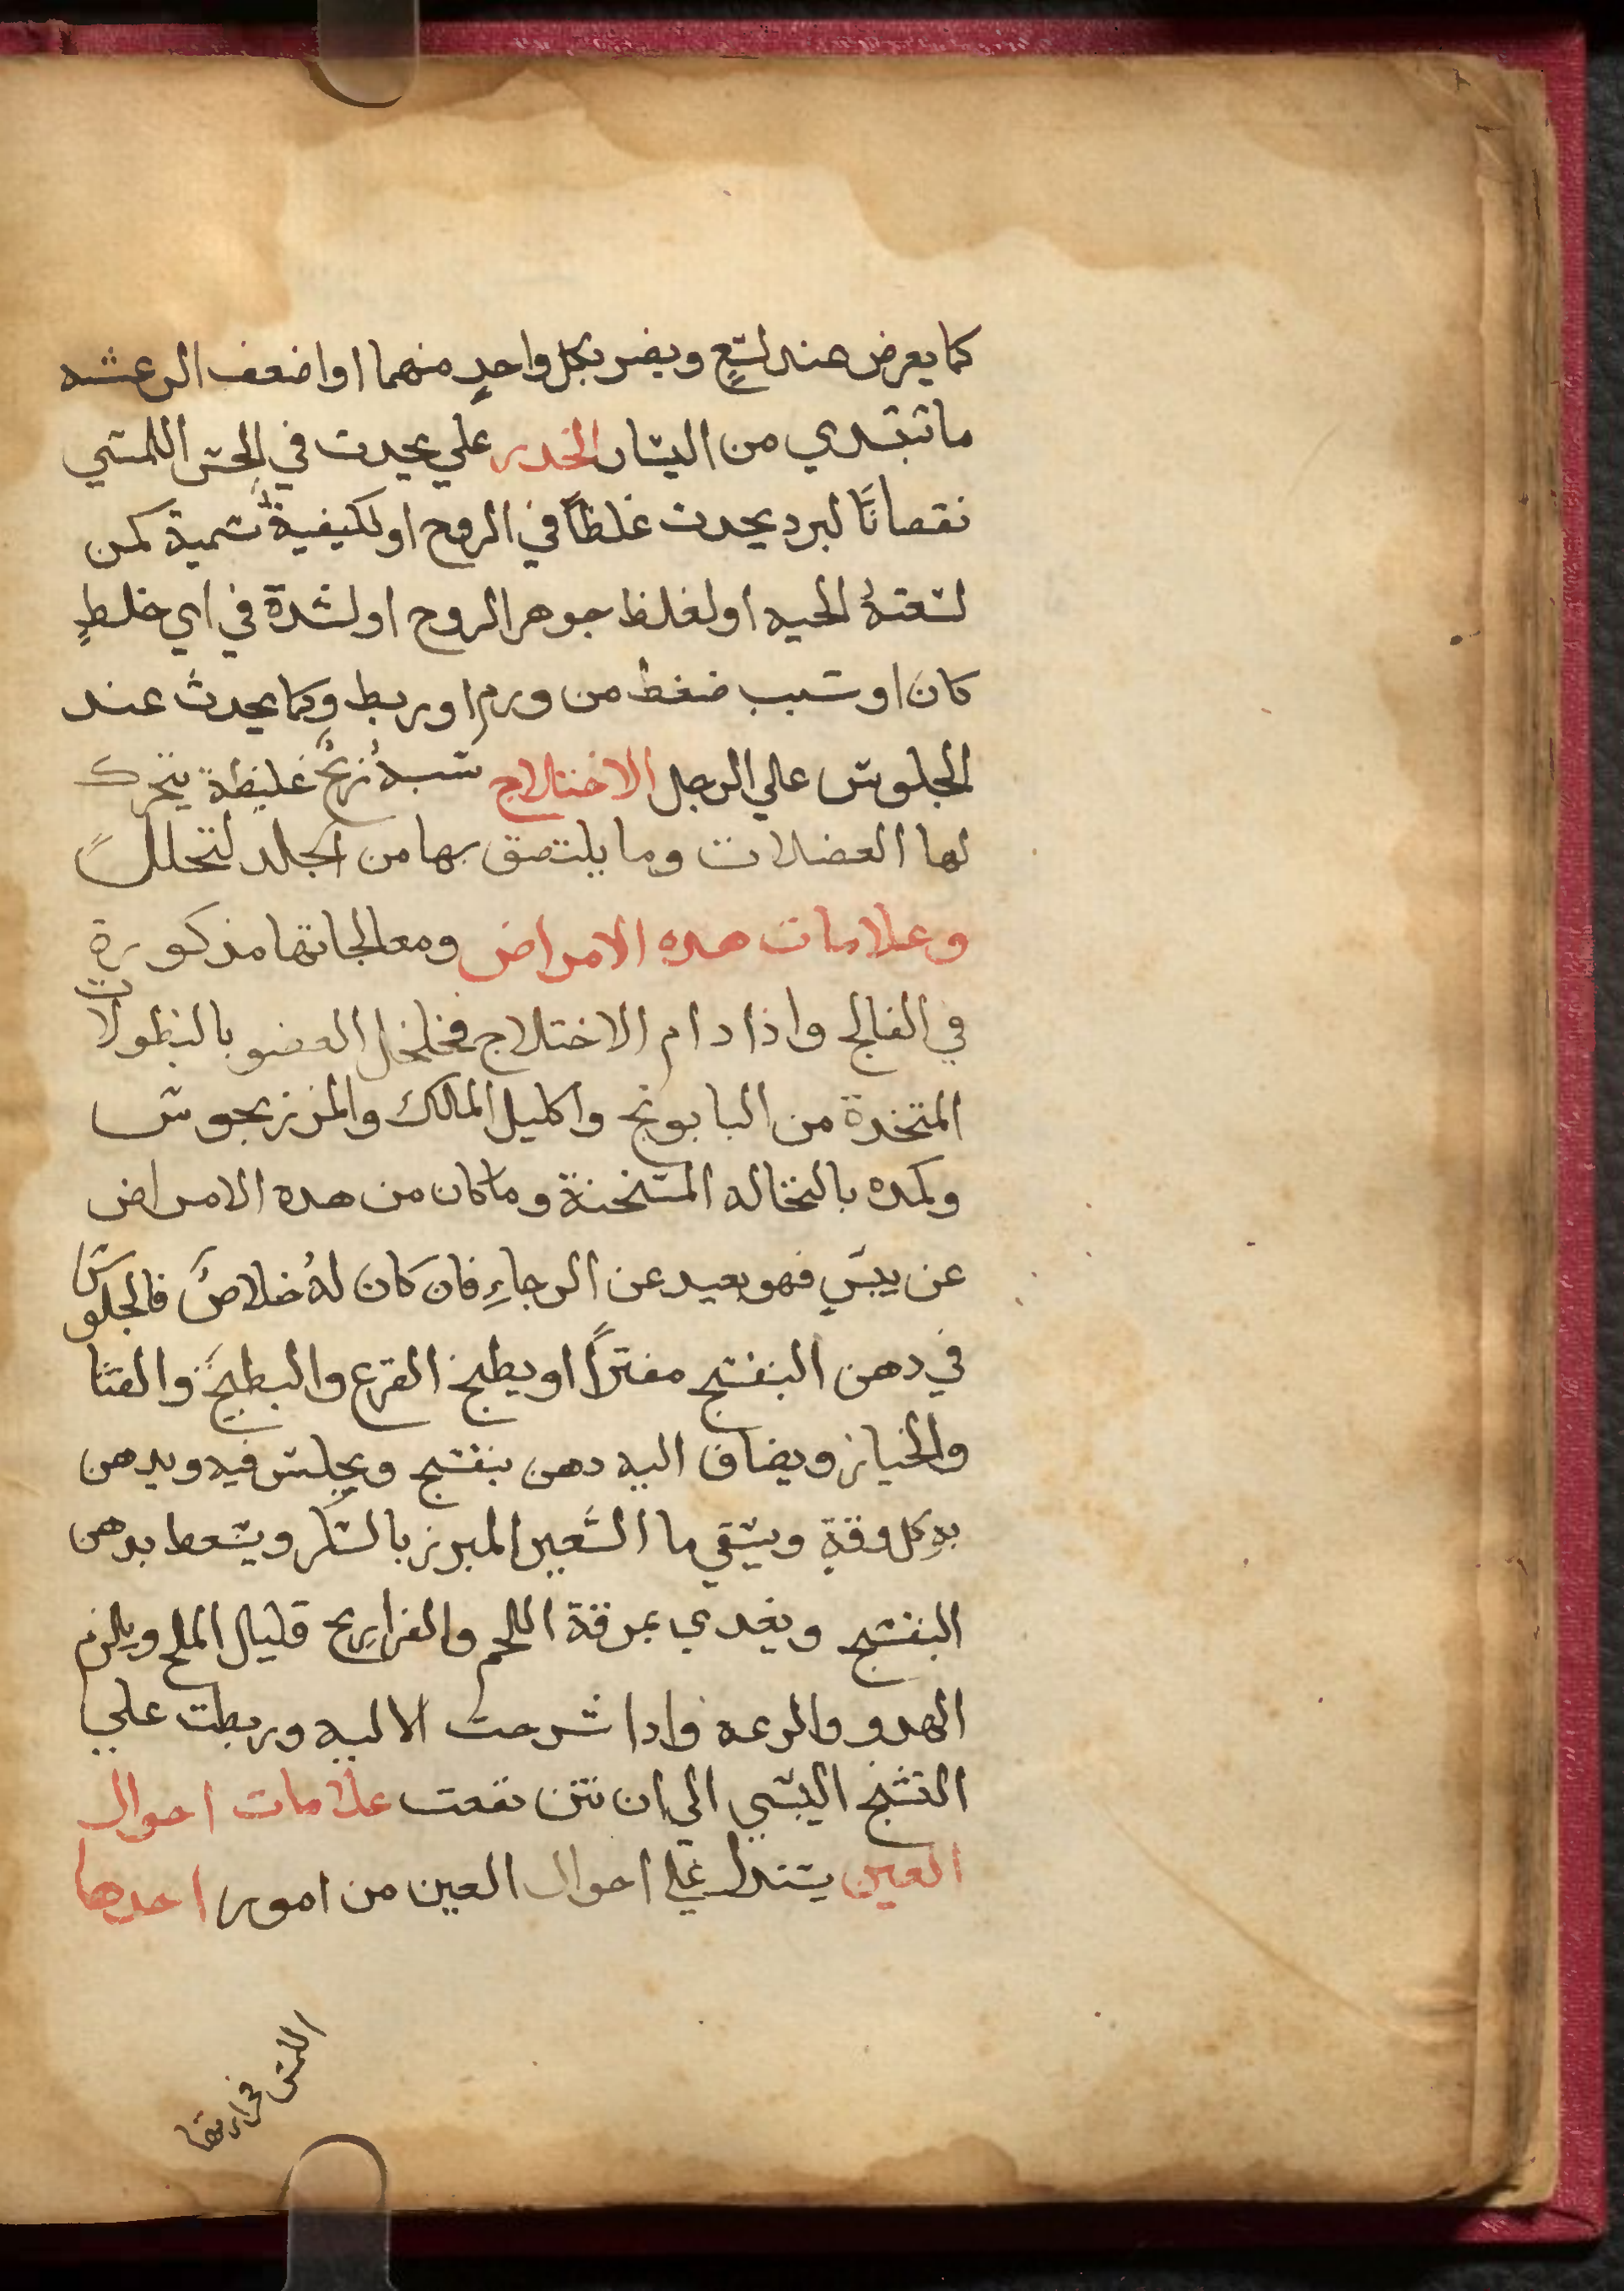 كما يعرض عند لتعٍ ويضر بكل واحدٍ منهما او اضعف الرعشه
ما تبتدي من اليسار الخدر علي يحدت في الحس اللمسي
نقصانًا لبرد يحدت غلظاً في الروح او لكيفية سمية كمن
لسعته الحيه او لغلظ جوهر الروح او لشدة في اي خلطٍ
كان او سبب ضغط من ورم او ربط وكما يحدث عند
الجلوس عالي الرجل الاختلاج سببه ريح غليظة يتحرك
لها العضلات وما يلتصق بها من الجلد لتحلل
وعلامات هده الامراض ومعالجاتها مذكورة
في الفالج واذا دام الاختلاج فخلخل العضو بالنطولات
المتخدة من البابونج واكليل المالك والمرزنجوس
وكمده بالنخاله المسخنة وما كان من هده الامراض
عن يبسٍ فهو بعيد عن الرجاءِ فان كان لهُ خلاصٌ فالجلوس
في دهن البنفسج مفترًا او يطبخ القرع والبطيخ والقثا
والخيار ويضاف اليه دهن بنفسج ويجلس فيه ويدهن
بهِ كل وقةٍ ويسقي ما الشعير المبرز بالسكر ويسعط بدهن
البنفسج ويغدي بمرقة اللحم والفراريج قليل الملح ويلزم
الهدو والرعه وادا شرحت الاليه وربطت علي
التشنج اليبسي الي ان تنتن نفعت علامات احوال
العين يستدل علي احوال العين من امور احدها
اللمس فحرارتها